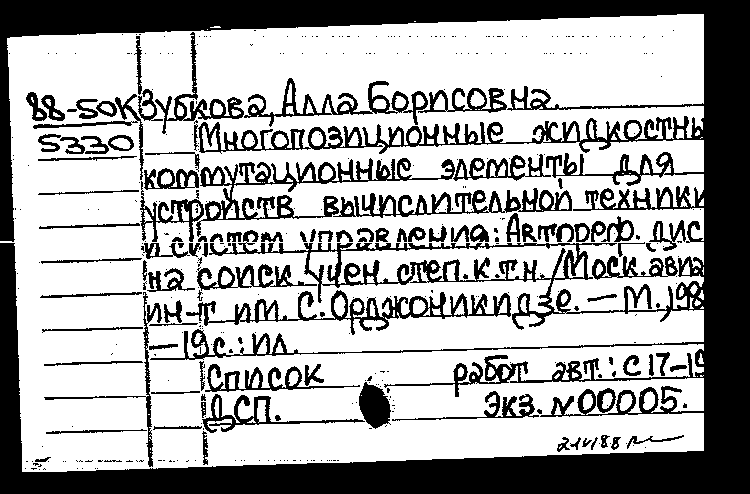 88-50К Зубкова, Алла Борисовна.
5330 Многопозиционные жидкостны
коммутационные элементы для
устройств вычислительной техники
и систем управления: Автореф. дис
на соиск. учен. степ. к.т.н. / Моск. авиа
ин-т им. С. Орджоникидзе. — М., 198
— 19с.: ил.
Список работ авт.: с 17-19
ДСП. Экз. N00005.